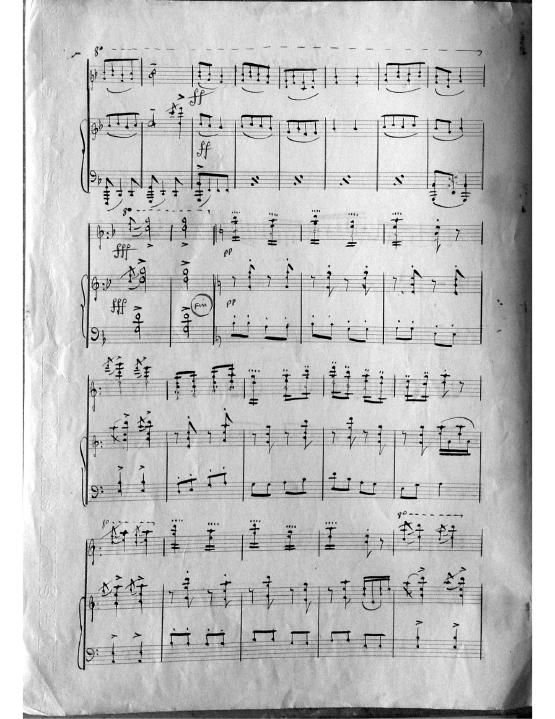 8ª
ff
ff
8ª
fff
pp
fff
Fin
pp
8ª
8ª